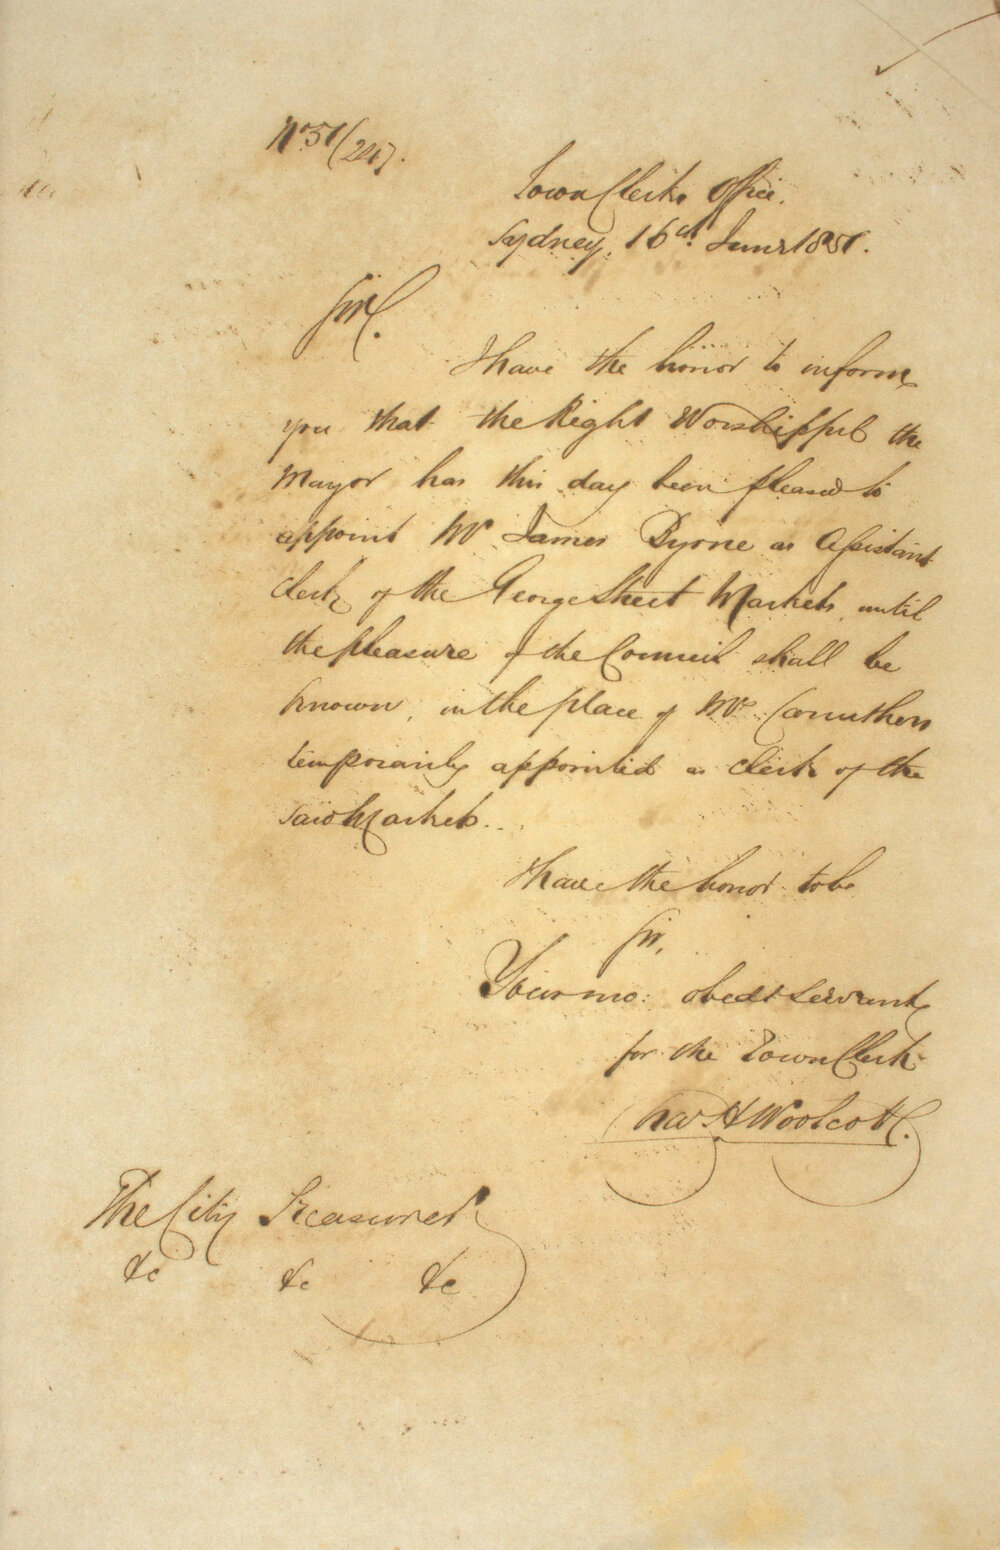 No 51/247.
Town Clerks Office.
Sydney, 16th June 1851.
Sir,
I have the honor to inform
you that the Right Worshipful the
Mayor has this day been pleased to
appoint Mr James Byrne as Assistant
Clerk of the George Street Markets, until
the pleasure of the Council shall be
known, in the place of Mr Carruthers
temporarily appointed as Clerk of the
said Markets.
I have the honor to be
Sir,
Your mo: obedt servant
for the Town Clerk
Chas H Woolcott.
The City Treasurer
&c &c &c